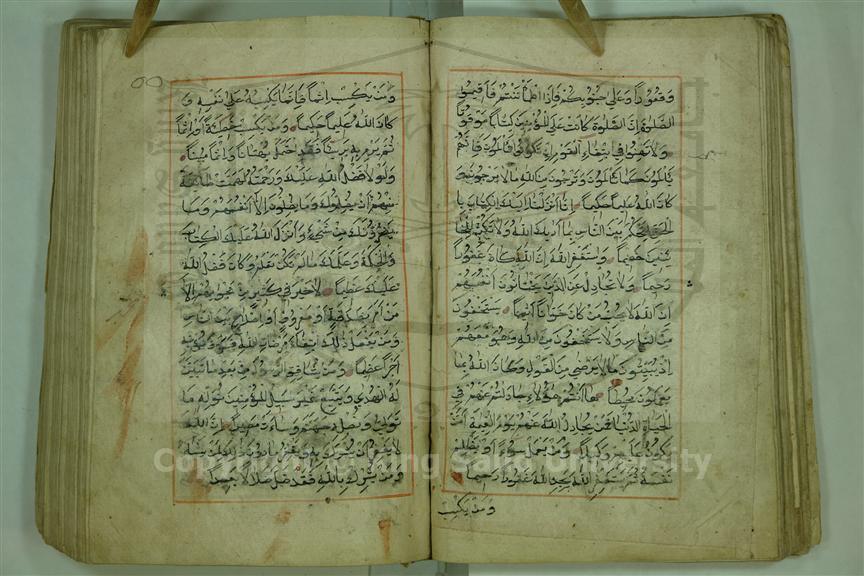 وقعودا وعلى جنوبكم فاذا اطمأننتم فاقيموا
الصلوة ان الصلوة كانت على المؤمنين كتابا موقوتا
ولا تهنوا في ابتغاء القوم ان تكونوا تألمون فانهم
يألمون كما تألمون وترجون من الله ما لا يرجون
وكان الله عليما حكيما انا انزلنا اليك الكتاب با
لحق لتحكم بين الناس بما اريك الله ولا تكن للخا
ئنين خصيما واستغفر الله ان الله كان غفورا
رحيما ولا تجادل عن الذين يختانون انفسهم
ان الله لا يحب من كان خوانا اثيما يستخفون
من الناس ولا يستخفون من الله وهو معهم
اذ يبيتون ما لا يرضى من القول وكان الله بما
يعملون محيطا ها انتم هؤلاء جادلتم عنهم في
الحيوة الدنيا فمن يجادل الله عنهم يوم القيمة ام من
يكون عليهم وكيلا ومن يعمل سوءا او يظلم
نفسه ثم يستغفر الله يجد الله غفورا رحيما
ومن يكسب
ومن يكسب اثما فانما يكسبه على نفسه و
كان الله عليما حكيما ومن يكسب خطيئة او اثما
ثم يرم به بريئا فقد احتمل بهتانا واثما مبينا
ولولا فضل الله عليك ورحمته لهمت طائفة
منهم ان يضلوك وما يضلون الا انفسهم وما
يضرونك من شيء وانزل الله عليك الكتاب
والحكمة وعلمك ما لم تكن تعلم وكان فضل الله
عليك عظيما لا خير في كثير من نجويهم الا
من امر بصدقة او معروف او اصلاح بين الناس
ومن يفعل ذلك ابتغاء مرضات الله فسوف نؤتيه
اجرا عظيما ومن يشاقق الرسول من بعد ما تبين
له الهدى ويتبع غير سبيل المؤمنين نوله ما
تولى ونصله جهنم وساءت مصيرا ان الله
لا يغفر ان يشرك به ويغفر ما دون ذلك لمن يشاء
ومن يشرك بالله فقد ضل ضلالا بعيدا
Copyright © King Saud University